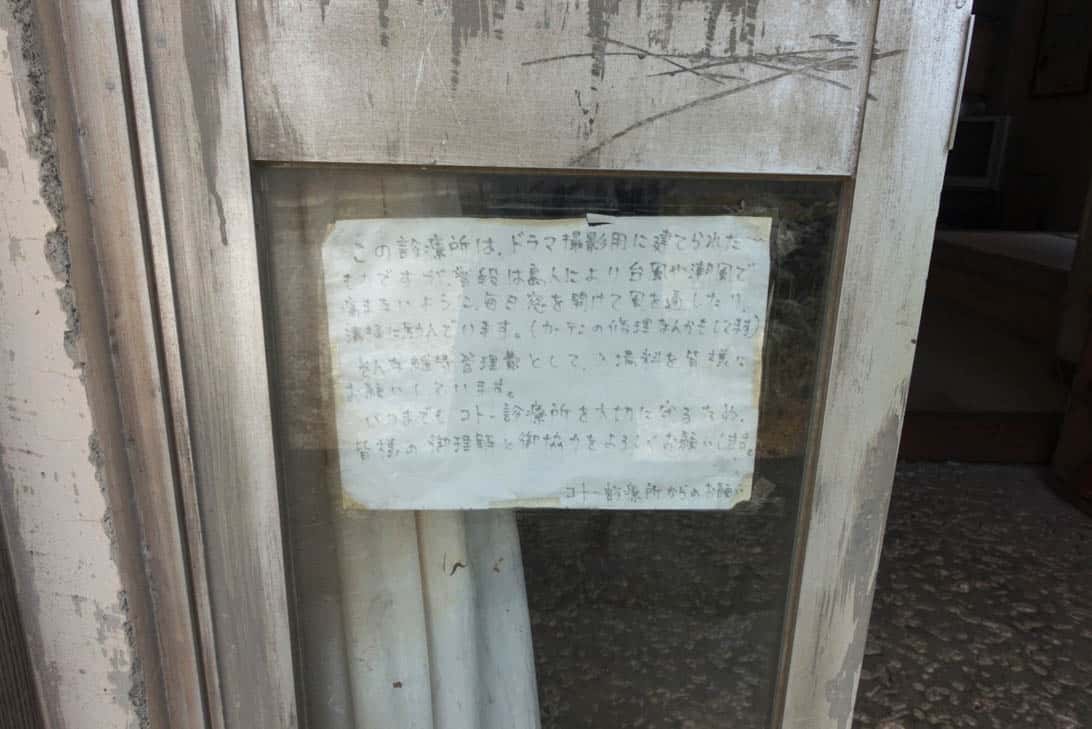 この診療所は、ドラマ撮影用に建てられた
ですが普段は無人により台風や潮風で
ないように、毎日窓を開けて風を通したり、
しています。(カーテンの修理なんかもしてます)
そんな維持管理費として、 料を皆様に
お願いしています。
いつまでもコトー診療所を大切に守るため、
皆様の御理解と御協力をよろしくお願いします。
コトー診療所からのお願い